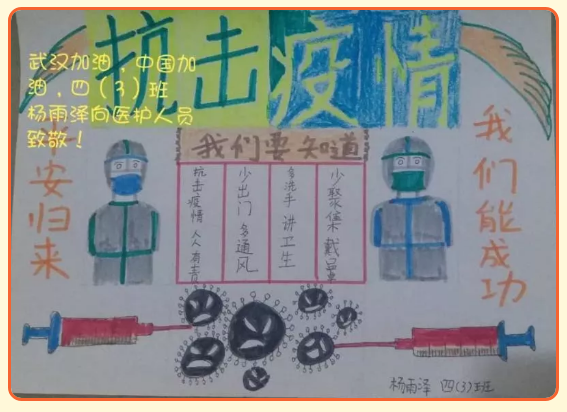 抗击疫情
武汉加油，中国加
油，四（3）班
杨雨泽向医护人员
致敬！
安归来
我们要知道
抗击疫情 人人有责
少出门 多通风
勤洗手 讲卫生
少聚集 戴口罩
我们能成功
杨雨泽 四(3)班